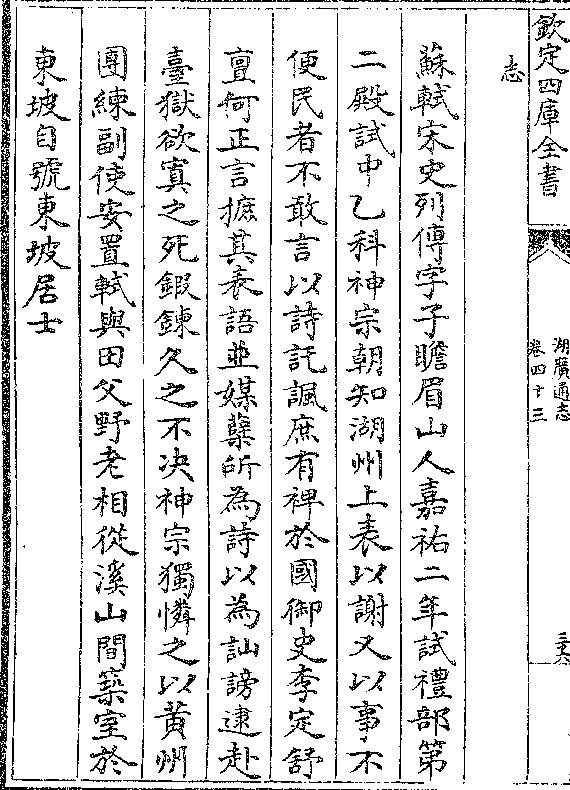 欽定四庫全書
湖廣通志
卷四十三
三六
志
蘇軾宋史列傳字子瞻眉山人嘉祐二年試禮部第
二殿試中乙科神宗朝知湖州上表以謝又以事不
便民者不敢言以詩託諷庶有裨於國御史李定舒
亶何正言摭其表語並媒糵所為詩以為訕謗逮赴
臺獄欲寘之死鍜鍊久之不決神宗獨憐之以黄州
團練副使安置軾與田父野老相從溪山間築室於
東坡自號東坡居士